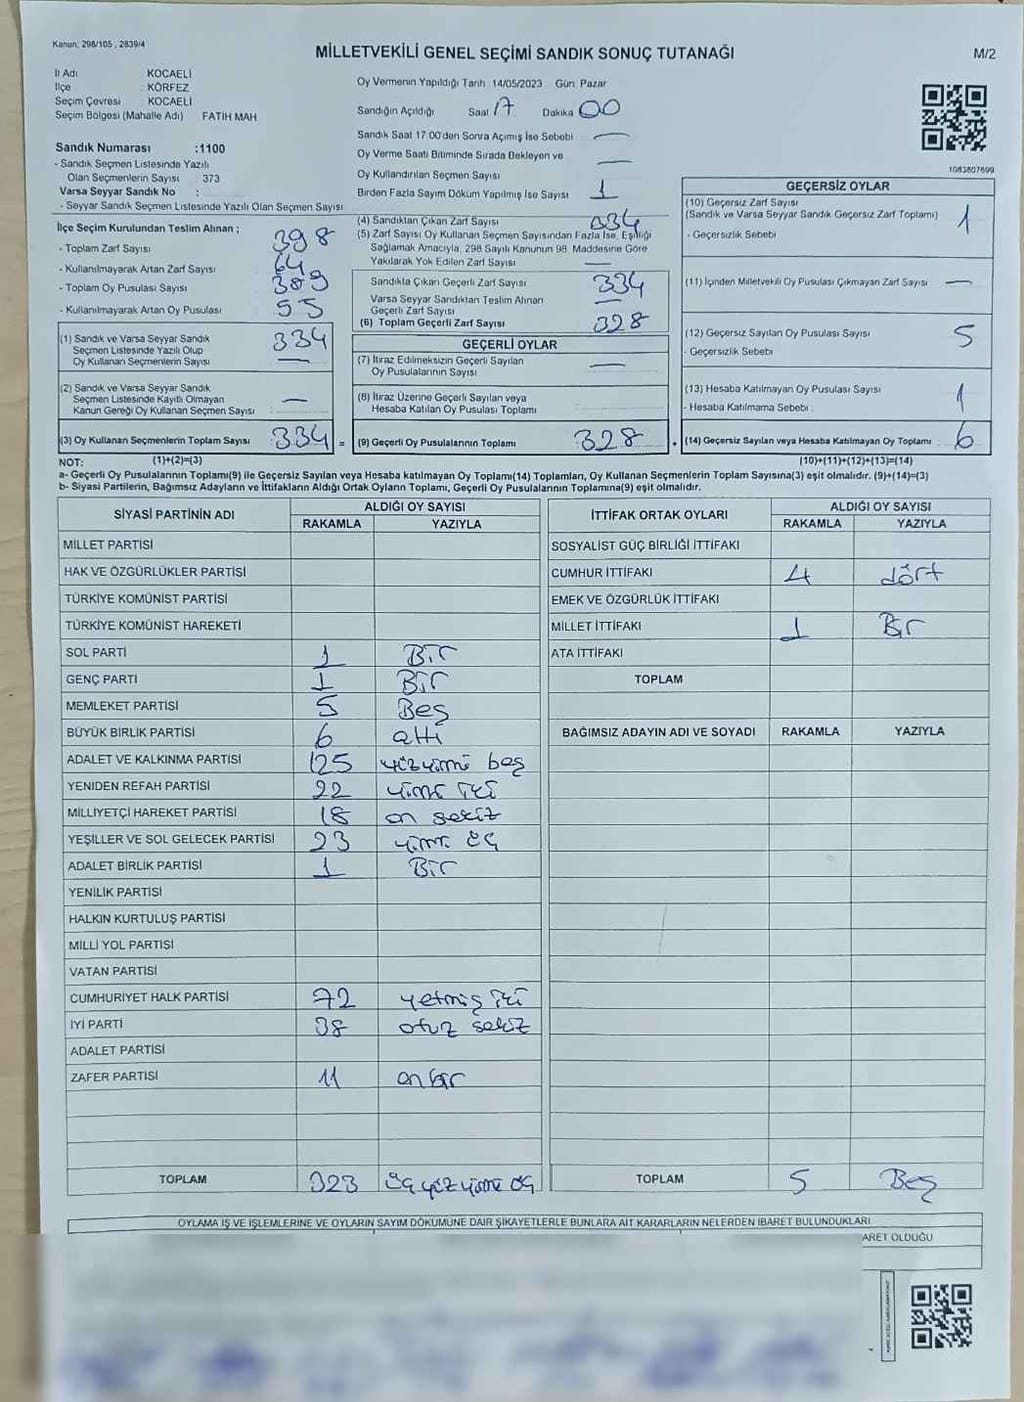 Kanun; 298/105 , 2839/4
MİLLETVEKİLİ GENEL SEÇİMİ SANDIK SONUÇ TUTANAĞI
M/2
İl Adı KOCAELİ
İlçe KÖRFEZ
Seçim Çevresi KOCAELİ
Seçim Bölgesi (Mahalle Adı) FATİH MAH
Oy Vermenin Yapıldığı Tarih 14/05/2023 Gün Pazar
Sandığın Açıldığı Saat 17 Dakika 00
Sandık Saat 17:00'den Sonra Açımış İse Sebebi —
Oy Verme Saati Bitiminde Sırada Bekleyen ve
Oy Kullandırılan Seçmen Sayısı —
Birden Fazla Sayım Döküm Yapılmış İse Sayısı 1
Sandık Numarası :1100
- Sandık Seçmen Listesinde Yazılı
Olan Seçmenlerin Sayısı : 373
Varsa Seyyar Sandık No :
- Seyyar Sandık Seçmen Listesinde Yazılı Olan Seçmen Sayısı
İlçe Seçim Kurulundan Teslim Alınan ;
- Toplam Zarf Sayısı 398
- Kullanılmayarak Artan Zarf Sayısı 64
- Toplam Oy Pusulası Sayısı 389
- Kullanılmayarak Artan Oy Pusulası 55
(1) Sandık ve Varsa Seyyar Sandık
Seçmen Listesinde Yazılı Olup
Oy Kullanan Seçmenlerin Sayısı 334
—
(2) Sandık ve Varsa Seyyar Sandık
Seçmen Listesinde Kayıtlı Olmayan
Kanun Gereği Oy Kullanan Seçmen Sayısı —
(3) Oy Kullanan Seçmenlerin Toplam Sayısı 334 =
(4) Sandıktan Çıkan Zarf Sayısı 334
(5) Zarf Sayısı Oy Kullanan Seçmen Sayısından Fazla İse, Eşitliği
Sağlamak Amacıyla, 298 Sayılı Kanunun 98. Maddesine Göre
Yakılarak Yok Edilen Zarf Sayısı —
Sandıkta Çıkan Geçerli Zarf Sayısı 334
Varsa Seyyar Sandıktan Teslim Alınan
Geçerli Zarf Sayısı —
(6) Toplam Geçerli Zarf Sayısı 328
GEÇERLİ OYLAR
(7) İtiraz Edilmeksizin Geçerli Sayılan
Oy Pusulalarının Sayısı —
(8) İtiraz Üzerine Geçerli Sayılan veya
Hesaba Katılan Oy Pusulası Toplamı
(9) Geçerli Oy Pusulalarının Toplamı 328 +
1083807699
GEÇERSİZ OYLAR
(10) Geçersiz Zarf Sayısı
(Sandık ve Varsa Seyyar Sandık Geçersiz Zarf Toplamı) 1
- Geçersizlik Sebebi
(11) İçinden Milletvekili Oy Pusulası Çıkmayan Zarf Sayısı —
(12) Geçersiz Sayılan Oy Pusulası Sayısı 5
- Geçersizlik Sebebi
(13) Hesaba Katılmayan Oy Pusulası Sayısı 1
- Hesaba Katılmama Sebebi
(14) Geçersiz Sayılan veya Hesaba Katılmayan Oy Toplamı : 6
NOT: (1)+(2)=(3) (10)+(11)+(12)+(13)=(14)
a- Geçerli Oy Pusulalarının Toplamı(9) ile Geçersiz Sayılan veya Hesaba katılmayan Oy Toplamı(14) Toplamları, Oy Kullanan Seçmenlerin Toplam Sayısına(3) eşit olmalıdır. (9)+(14)=(3)
b- Siyasi Partilerin, Bağımsız Adayların ve İttifakların Aldığı Ortak Oyların Toplamı, Geçerli Oy Pusulalarının Toplamına(9) eşit olmalıdır.
SİYASİ PARTİNİN ADI ALDIĞI OY SAYISI
RAKAMLA YAZIYLA
MİLLET PARTİSİ
HAK VE ÖZGÜRLÜKLER PARTİSİ
TÜRKİYE KOMÜNİST PARTİSİ
TÜRKİYE KOMÜNİST HAREKETİ
SOL PARTİ 1 Bir
GENÇ PARTİ 1 Bir
MEMLEKET PARTİSİ 5 Beş
BÜYÜK BİRLİK PARTİSİ 6 altı
ADALET VE KALKINMA PARTİSİ 125 yüzyirmi beş
YENİDEN REFAH PARTİSİ 22 yirmi iki
MİLLİYETÇİ HAREKET PARTİSİ 18 on sekiz
YEŞİLLER VE SOL GELECEK PARTİSİ 23 yirmi üç
ADALET BİRLİK PARTİSİ 1 Bir
YENİLİK PARTİSİ
HALKIN KURTULUŞ PARTİSİ
MİLLİ YOL PARTİSİ
VATAN PARTİSİ
CUMHURİYET HALK PARTİSİ 72 yetmiş iki
İYİ PARTİ 38 otuz sekiz
ADALET PARTİSİ
ZAFER PARTİSİ 11 on bir
TOPLAM 323 üçyüzyirmi üç
İTTİFAK ORTAK OYLARI ALDIĞI OY SAYISI
RAKAMLA YAZIYLA
SOSYALİST GÜÇ BİRLİĞİ İTTİFAKI
CUMHUR İTTİFAKI 4 dört
EMEK VE ÖZGÜRLÜK İTTİFAKI
MİLLET İTTİFAKI 1 Bir
ATA İTTİFAKI
TOPLAM
BAĞIMSIZ ADAYIN ADI VE SOYADI RAKAMLA YAZIYLA
TOPLAM 5 Beş
OYLAMA İŞ VE İŞLEMLERİNE VE OYLARIN SAYIM DÖKÜMÜNE DAİR ŞİKAYETLERLE BUNLARA AİT KARARLARIN NELERDEN İBARET BULUNDUKLARI
ARET OLDUĞU